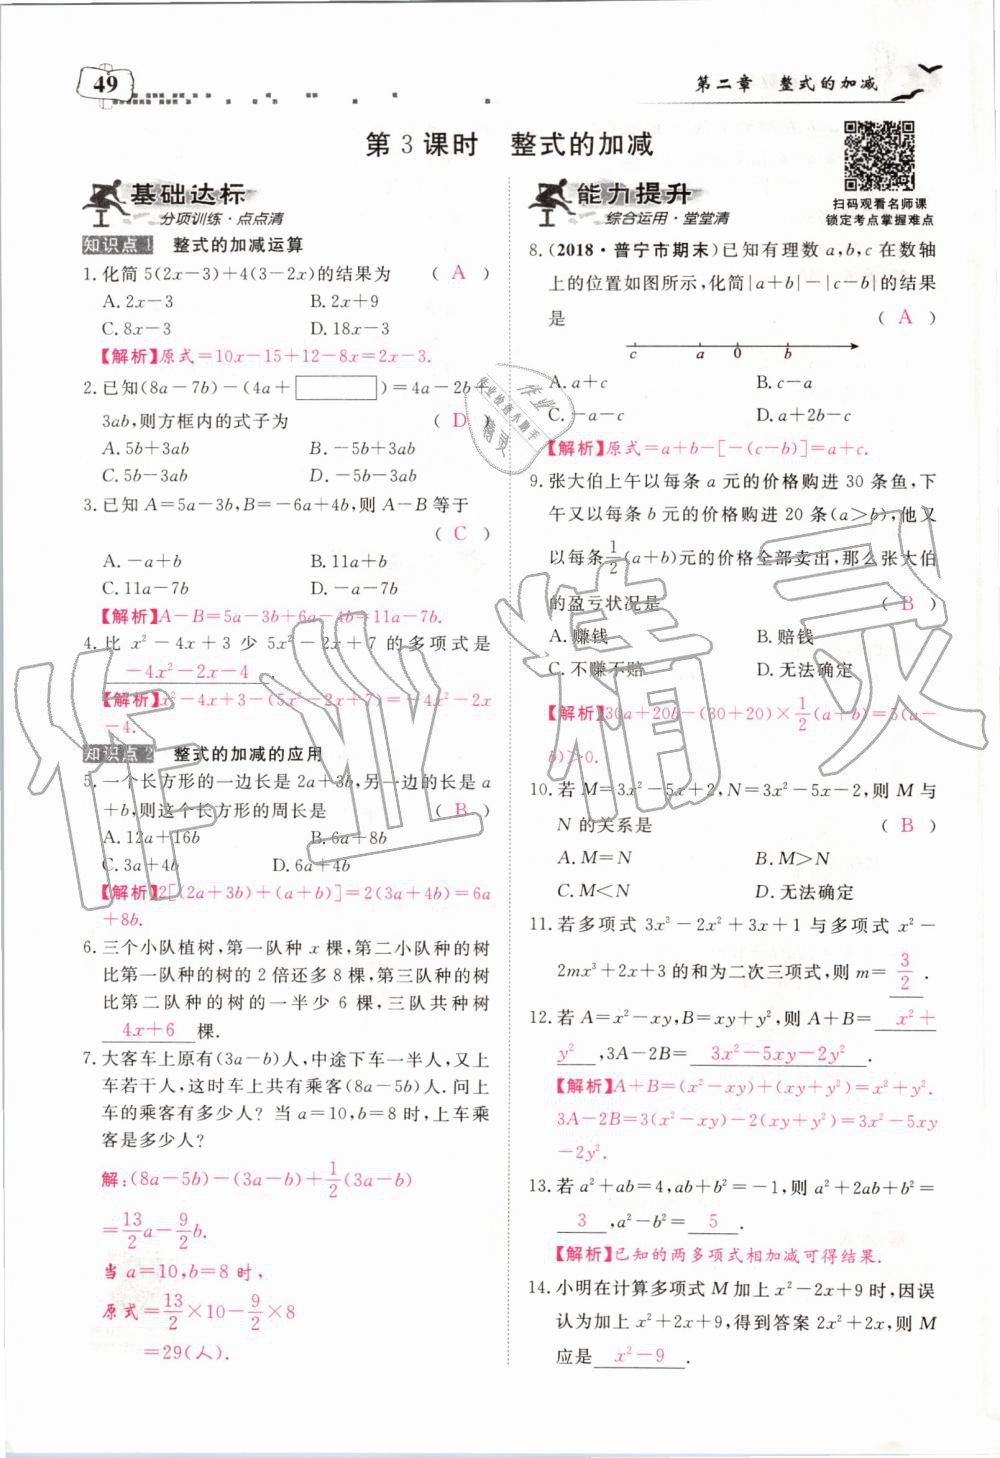 49
第二章 整式的加减
第 3 课时 整式的加减
基础达标
分项训练·点点清
知识点 1 整式的加减运算
1. 化简 5(2x-3)+4(3-2x)的结果为 ( A )
A. 2x-3 B. 2x+9
C. 8x-3 D. 18x-3
【解析】原式=10x-15+12-8x=2x-3.
2. 已知(8a-7b)-(4a+□)=4a-2b+
3ab,则方框内的式子为 ( D )
A. 5b+3ab B. -5b+3ab
C. 5b-3ab D. -5b-3ab
3. 已知 A=5a-3b,B=-6a+4b,则 A-B 等于
( C )
A. -a+b B. 11a+b
C. 11a-7b D. -a-7b
【解析】A-B=5a-3b+6a-4b=11a-7b.
4. 比 x²-4x+3 少 5x²-2x+7 的多项式是
-4x²-2x-4 .
【解析】x²-4x+3-(5x²-2x+7)=-4x²-2x
-4.
知识点 2 整式的加减的应用
5. 一个长方形的一边长是 2a+3b,另一边的长是 a
+b,则这个长方形的周长是 ( B )
A. 12a+16b B. 6a+8b
C. 3a+4b D. 6a+4b
【解析】2[(2a+3b)+(a+b)]=2(3a+4b)=6a
+8b.
6. 三个小队植树,第一队种 x 棵,第二小队种的树
比第一队种的树的 2 倍还多 8 棵,第三队种的树
比第二队种的树的一半少 6 棵,三队共种树
4x+6 棵.
7. 大客车上原有(3a-b)人,中途下车一半人,又上
车若干人,这时车上共有乘客(8a-5b)人.问上
车的乘客有多少人? 当 a=10,b=8 时,上车乘
客是多少人?
解:(8a-5b)-(3a-b)+1/2(3a-b)
=13/2a-9/2b.
当 a=10,b=8 时,
原式=13/2×10-9/2×8
=29(人).
能力提升
综合运用·堂堂清
扫码观看名师课
锁定考点掌握难点
8. (2018·普宁市期末)已知有理数 a,b,c 在数轴
上的位置如图所示,化简|a+b|-|c-b|的结果
是 ( A )
c a 0 b
A. a+c B. c-a
C. -a-c D. a+2b-c
【解析】原式=a+b-[-(c-b)]=a+c.
9. 张大伯上午以每条 a 元的价格购进 30 条鱼,下
午又以每条 b 元的价格购进 20 条(a>b),他又
以每条1/2(a+b)元的价格全部卖出,那么张大伯
的盈亏状况是 ( B )
A. 赚钱 B. 赔钱
C. 不赚不赔 D. 无法确定
【解析】30a+20b-(30+20)×1/2(a+b)=5(a-
b)>0.
10. 若 M=3x²-5x+2,N=3x²-5x-2,则 M 与
N 的关系是 ( B )
A. M=N B. M>N
C. M<N D. 无法确定
11. 若多项式 3x³-2x²+3x+1 与多项式 x²-
2mx³+2x+3 的和为二次三项式,则 m= 3/2 .
12. 若 A=x²-xy,B=xy+y²,则 A+B= x²+
y² ,3A-2B= 3x²-5xy-2y² .
【解析】A+B=(x²-xy)+(xy+y²)=x²+y².
3A-2B=3(x²-xy)-2(xy+y²)=3x²-5xy
-2y².
13. 若 a²+ab=4,ab+b²=-1,则 a²+2ab+b²=
3 ,a²-b²= 5 .
【解析】已知的两多项式相加减可得结果.
14. 小明在计算多项式 M 加上 x²-2x+9 时,因误
认为加上 x²+2x+9,得到答案 2x²+2x,则 M
应是 x²-9 .
作业精灵